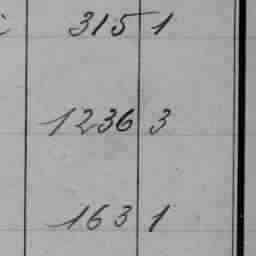 315 1
1236 3
163 1